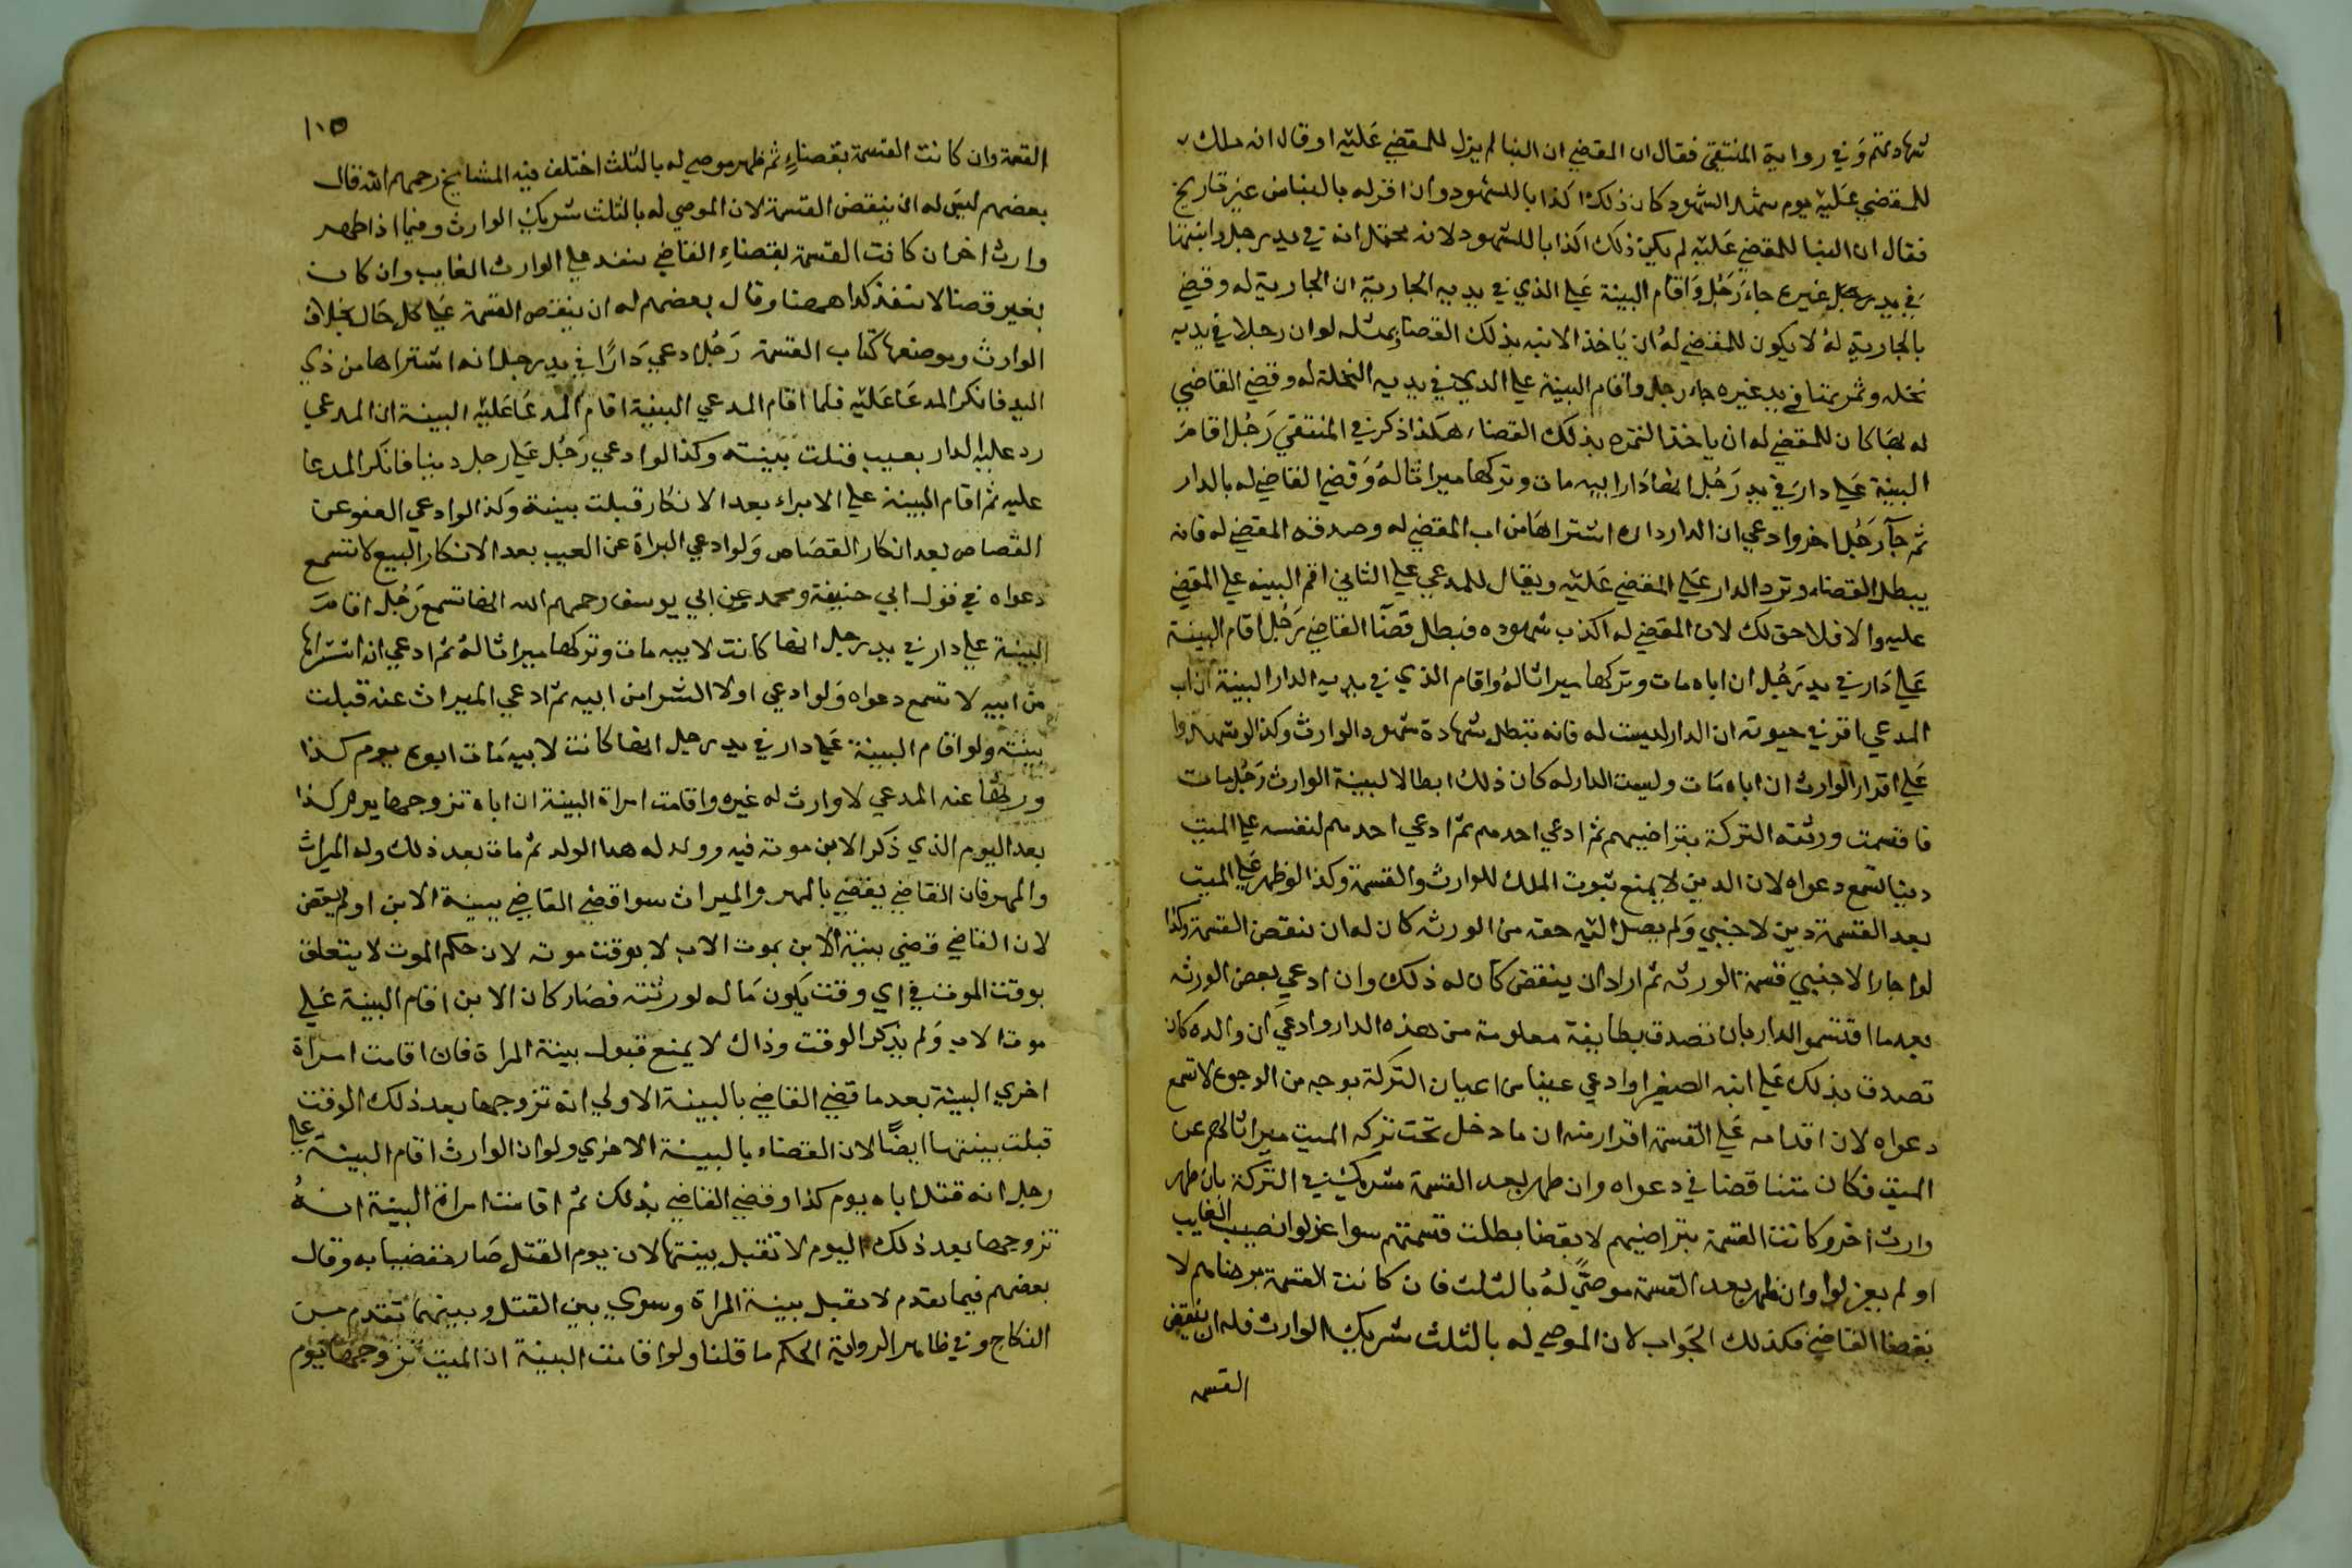 شهادتهم وفي رواية المنتقى فقال ان المقضي ان البنا لم يزل للمقضي عليه او قال انه ملك
للمقضي عليه يوم شهد الشهود كان ذلك اكذابا للشهود وان اقر له بالبنا من غير تاريخ
فقال ان البنا للمقضي عليه لم يكن ذلك اكذابا للشهود لانه محتمل انه في يد رجل وابنتها
في يد رجل غيره جاء رجل واقام البينة على الذي في يديه الجارية ان الجارية له وقضي
بالجارية له لا يكون للمقضي له ان ياخذ الابنه بذلك القضاء بمثله لو ان رجلا في يديه
نخله وثمرتها في يد غيره جاء رجل واقام البينة على الذي في يديه النخلة له وقضي القاضي
له بها كان للمقضي له ان ياخذ الثمره بذلك القضاء هكذا ذكر في المنتقى رجل اقام
البينة على دار في يد رجل انها دار ابيه مات وتركها ميراثا له وقضي القاضي له بالدار
ثم جآ رجل اخر وادعي ان الدار داره اشتراها من اب المقضي له وصدقه المقضي له فانه
يبطل القضاء وترد الدار على المقضي عليه ويقال للمدعي على الثاني اقم البينه على المقضي
عليه والا فلا حق لك لان المقضي له اكذب شهوده فبطل قضآ القاضي رجل اقام البينة
على دار في يد رجل ان اباه مات وتركها ميراثا له واقام الذي في يديه الدار البينة ان اب
المدعي اقر في حيوته ان الدار ليست له فانه تبطل شهادة شهود الوارث وكذا لو شهدوا
على اقرار الوارث ان اباه مات وليست الدار له كان ذلك ابطالا لبينة الوارث رجل مات
فاقتسمت ورثته التركة بتراضيهم ثم ادعي احدهم ثم ادعي احدهم لنفسه على الميت
دينا تسمع دعواه لان الدين لا يمنع ثبوت الملك للوارث والقسمة وكذا لو ظهر على الميت
بعد القسمة دين لاجنبي ولم يصل اليه حقه من الورثه كان له ان ينقض القسمة وكذا
لو اجاز الاجنبي قسمة الورثه ثم اراد ان ينقض كان له ذلك وان ادعي بعض الورثه
بعد ما اقتسموا الدار بان تصدق بطايفة معلومة من هذه الدار وادعي ان والده كان
تصدق بذلك على ابنه الصغير او ادعي عينا من اعيان التركة بوجه من الوجوه لا تسمع
دعواه لان اقدامه على القسمة اقرار منه ان ما دخل تحت تركه الميت ميراثا لهم عن
الميت فكان متناقضا في دعواه وان ظهر بعد القسمة شريك في التركة بان ظهر
وارث اخر وكانت القسمة بتراضيهم لا بقضا بطلت قسمتهم سوا عزلوا نصيب الغايب
او لم يعزلوا وان ظهر بعد القسمة موصًي له بالثلث فان كانت القسمة برضاهم لا
بقضا القاضي فكذلك الجواب لان الموصي له بالثلث شريك الوارث فله ان ينقض
القسمه
١٠٥
القسمة وان كانت القسمة بقضاءٍ ثم ظهر موصي له بالثلث اختلف فيه المشايخ رحمهم الله قال
بعضهم ليس له ان ينقض القسمة لان الموصي له بالثلث شريك الوارث وفيما اذا ظهر
وارث اخر ان كانت القسمة بقضاءِ القاضي ينفذ على الوارث الغايب وان كان
بغير قضا لا ينفذ كذا ههنا وقال بعضهم له ان ينقض القسمة على كل حال بخلاف
الوارث وموضعها كتاب القسمة رجل ادعي دارًا في يد رجل انه اشتراها من ذي
اليد فانكر المدعا عليه فلما اقام المدعي البينة اقام المدعا عليه البينة ان المدعي
رد عليه الدار بعيب قبلت بينته وكذا لو ادعي رجل على رجل دينا فانكر المدعا
عليه ثم اقام البينة على الابراء بعد الانكار قبلت بينة وكذا لو ادعي العفو عن
القصاص بعد انكار القصاص ولو ادعي البراة عن العيب بعد الانكار البيع لا تسمع
دعواه في قول ابي حنيفة ومحمد وعن ابي يوسف رحمهم الله انها تسمع رجل اقام
البينة على دار في يد رجل انها كانت لابيه مات وتركها ميراثا له ثم ادعي انه اشتراها
من ابيه لا تسمع دعواه ولو ادعي اولا الشرا من ابيه ثم ادعي الميراث عنه قبلت
بينته ولو اقام البينة على دار في يد رجل انها كانت لابيه مات ابوه يوم كذا
وورثها عنه المدعي لا وارث له غيره واقامت امراة البينة ان اباه تزوجها يوم كذا
بعد اليوم الذي ذكر الابن موته فيه وولد له هذا الولد ثم مات بعد ذلك وله الميراث
والمهر فان القاضي يقضي بالمهر والميراث سوا قضي القاضي ببينة الابن او لم يقض
لان القاضي قضي ببينة الابن بموت الاب لا بوقت موته لان حكم الموت لا يتعلق
بوقت الموت في اي وقت يكون ماله لورثته فصار كان الابن اقام البينة على
موت الاب ولم يذكر الوقت وذاك لا يمنع قبول بينة المراة فان اقامت امراة
اخري البينة بعد ما قضي القاضي بالبينة الاولي انه تزوجها بعد ذلك الوقت
قبلت بينتها ايضًا لان القضاء بالبينة الاخري ولو ان الوارث اقام البينة على
رجل انه قتل اباه يوم كذا وقضي القاضي بذلك ثم اقامت امراة البينة انه
تزوجها بعد ذلك اليوم لا تقبل بينتها لان يوم القتل صار مقضيا به وقال
بعضهم فيما تقدم لا تقبل بينة المراة وسوي بين القتل وبينهما تقدم من
النكاح وفي ظاهر الرواية الحكم ما قلنا ولو اقامت البينة ان الميت تزوجها يوم